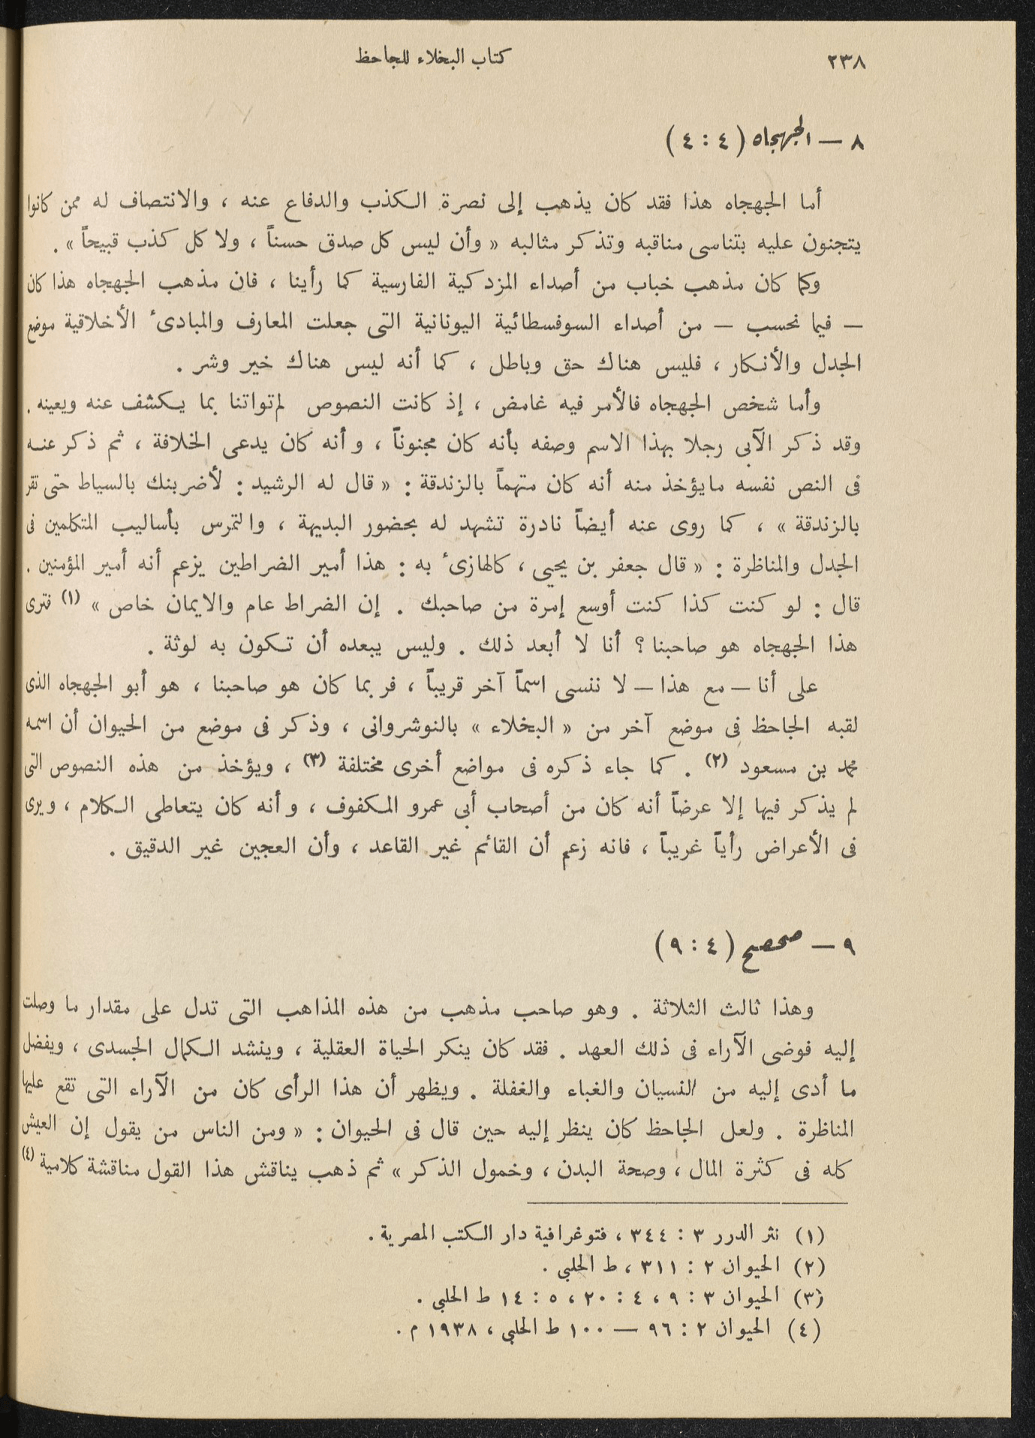 ٢٣٨
كتاب البخلاء للجاحظ
٨ — الجهجاه (٤ : ٤)
أما الجهجاه هذا فقد كان يذهب إلى نصرة الكذب والدفاع عنه ، والانتصاف له ممن كانوا
يتجنون عليه بتناسى مناقبه وتذكر مثالبه « وأن ليس كل صدق حسناً ، ولا كل كذب قبيحاً » .
وكما كان مذهب خباب من أصداء المزدكية الفارسية كما رأينا ، فان مذهب الجهجاه هذا كان
— فيما نحسب — من أصداء السوفسطائية اليونانية التى جعلت المعارف والمبادىء الأخلاقية موضع
الجدل والأنكار ، فليس هناك حق وباطل ، كما أنه ليس هناك خير وشر .
وأما شخص الجهجاه فالأمر فيه غامض ، إذ كانت النصوص لم تواتنا بما يكشف عنه ويعينه .
وقد ذكر الآبى رجلا بهذا الاسم وصفه بأنه كان مجنوناً ، وأنه كان يدعى الخلافة ، ثم ذكر عنه
فى النص نفسه ما يؤخذ منه أنه كان متهماً بالزندقة : « قال له الرشيد : لأضربنك بالسياط حتى تقر
بالزندقة » ، كما روى عنه أيضاً نادرة تشهد له بحضور البديهة ، والتمرس بأساليب المتكلمين فى
الجدل والمناظرة : « قال جعفر بن يحيى ، كالهازىء به : هذا أمير الضراطين يزعم أنه أمير المؤمنين .
قال : لو كنت كذا كنت أوسع إمرة من صاحبك . إن الضراط عام والايمان خاص » (١) فترى
هذا الجهجاه هو صاحبنا ؟ أنا لا أبعد ذلك . وليس يبعده أن تكون به لوثة .
على أنا — مع هذا — لا ننسى اسماً آخر قريباً ، فربما كان هو صاحبنا ، هو أبو الجهجاه الذى
لقبه الجاحظ فى موضع آخر من « البخلاء » بالنوشروانى ، وذكر فى موضع من الحيوان أن اسمه
محمد بن مسعود (٢) . كما جاء ذكره فى مواضع أخرى مختلفة (٣) ، ويؤخذ من هذه النصوص التى
لم يذكر فيها إلا عرضاً أنه كان من أصحاب أبى عمرو المكفوف ، وأنه كان يتعاطى الكلام ، ويرى
فى الأعراض رأياً غريباً ، فانه زعم أن القائم غير القاعد ، وأن العجين غير الدقيق .
٩ — صحصح (٤ : ٩)
وهذا ثالث الثلاثة . وهو صاحب مذهب من هذه المذاهب التى تدل على مقدار ما وصلت
إليه فوضى الآراء فى ذلك العهد . فقد كان ينكر الحياة العقلية ، وينشد الكمال الجسدى ، ويفضل
ما أدى إليه من النسيان والغباء والغفلة . ويظهر أن هذا الرأى كان من الآراء التى تقع عليها
المناظرة . ولعل الجاحظ كان ينظر إليه حين قال فى الحيوان : « ومن الناس من يقول إن العيش
كله فى كثرة المال ، وصحة البدن ، وخمول الذكر » ثم ذهب يناقش هذا القول مناقشة كلامية (٤)
(١) نثر الدرر ٣ : ٣٤٤ ، فتوغرافية دار الكتب المصرية .
(٢) الحيوان ٢ : ٣١١ ، ط الحلبى .
(٣) الحيوان ٣ : ٩ ، ٤ : ٢٠ ، ٥ : ١٤ ط الحلبى .
(٤) الحيوان ٢ : ٩٦ — ١٠٠ ط الحلبى ، ١٩٣٨ م .